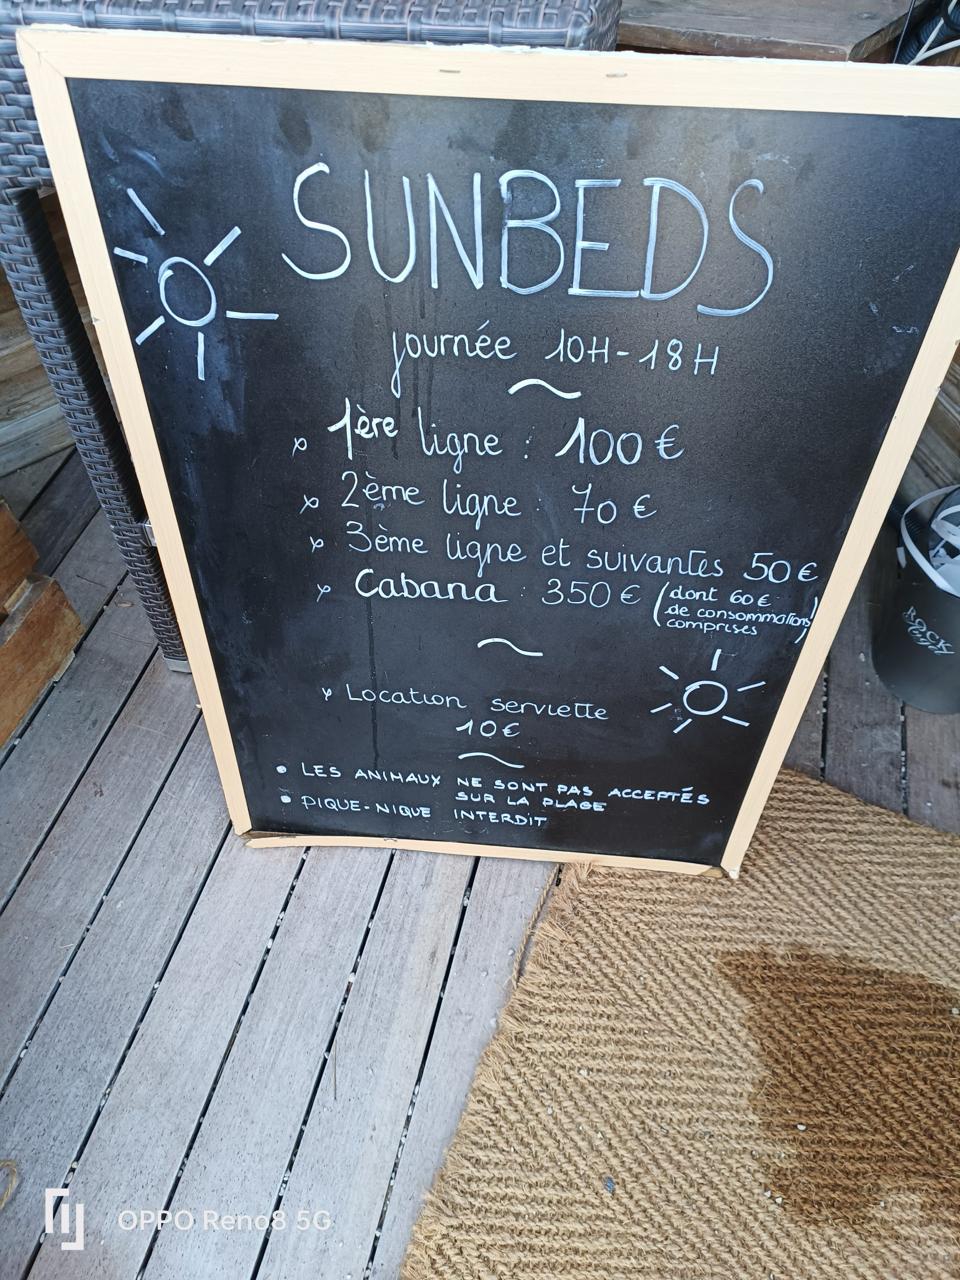 SUNBEDS
journée 10H-18H
1ère ligne : 100€
2ème ligne : 70€
3ème ligne et suivantes 50€
Cabana : 350€ (dont 60€
de consommations
comprises)
Location serviette
10€
• LES ANIMAUX NE SONT PAS ACCEPTÉS
SUR LA PLAGE
• PIQUE-NIQUE INTERDIT
ROCK
OPPO Reno8 5G